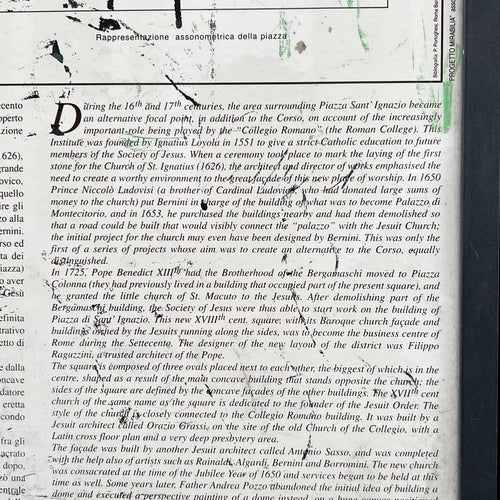 Rappresentazione assonometrica della piazza
Bibliografia: P. Portoghesi, Roma
"PROGETTO MIRABILIA"
During the 16th and 17th centuries, the area surrounding Piazza Sant' Ignazio became
an alternative focal point, in addition to the Corso, on account of the increasingly
important role being played by the "Collegio Romano" (the Roman College). This
Institute was founded by Ignatius Loyola in 1551 to give a strict Catholic education to future
members of the Society of Jesus. When a ceremony took place to mark the laying of the first
stone for the Church of St. Ignatius (1626), the architect and director of works emphasised the
need to create a worthy environment to the great façade of this new place of worship. In 1650
Prince Niccolò Ludovisi (a brother of Cardinal Ludovisi, who had donated large sums of
money to the church) put Bernini in charge of the building of what was to become Palazzo di
Montecitorio, and in 1653, he purchased the buildings nearby and had them demolished so
that a road could be built that would visibly connect the "palazzo" with the Jesuit Church;
the initial project for the church may even have been designed by Bernini. This was only the
first of a series of projects whose aim was to create an alternative to the Corso, equally
distinguished.
In 1725, Pope Benedict XIIIth had the Brotherhood of the Bergamaschi moved to Piazza
Colonna (they had previously lived in a building that occupied part of the present square), and
he granted the little church of St. Macuto to the Jesuits. After demolishing part of the
Bergamaschi building, the Society of Jesus were thus able to start work on the building of
Piazza di Sant' Ignazio. This new XVIIIth cent. square, with its Baroque church façade and
buildings owned by the Jesuits running along the sides, was to become the business centre of
Rome during the Settecento. The designer of the new layout of the district was Filippo
Raguzzini, a trusted architect of the Pope.
The square is composed of three ovals placed next to each other, the biggest of which is in the
centre, shaped as a result of the main concave building that stands opposite the church; the
sides of the square are defined by the concave façades of the other buildings. The XVIIth cent
church of the same name as the square is dedicated to the founder of the Jesuit Order. The
style of the church is closely connected to the Collegio Romano building. It was built by a
Jesuit architect called Orazio Grassi, on the site of the old Church of the Collegio, with a
Latin cross floor plan and a very deep presbytery area.
The façade was built by another Jesuit architect called Antonio Sasso, and was completed
with the help also of artists such as Rainaldi, Algardi, Bernini and Borromini. The new church
was consacrated at the time of the Jubilee Year of 1650 and services began to be held at this
time as well. Some years later, Father Andrea Pozzo abandoned the initial idea of building a
dome and executed a perspective painting of a dome instead, on a